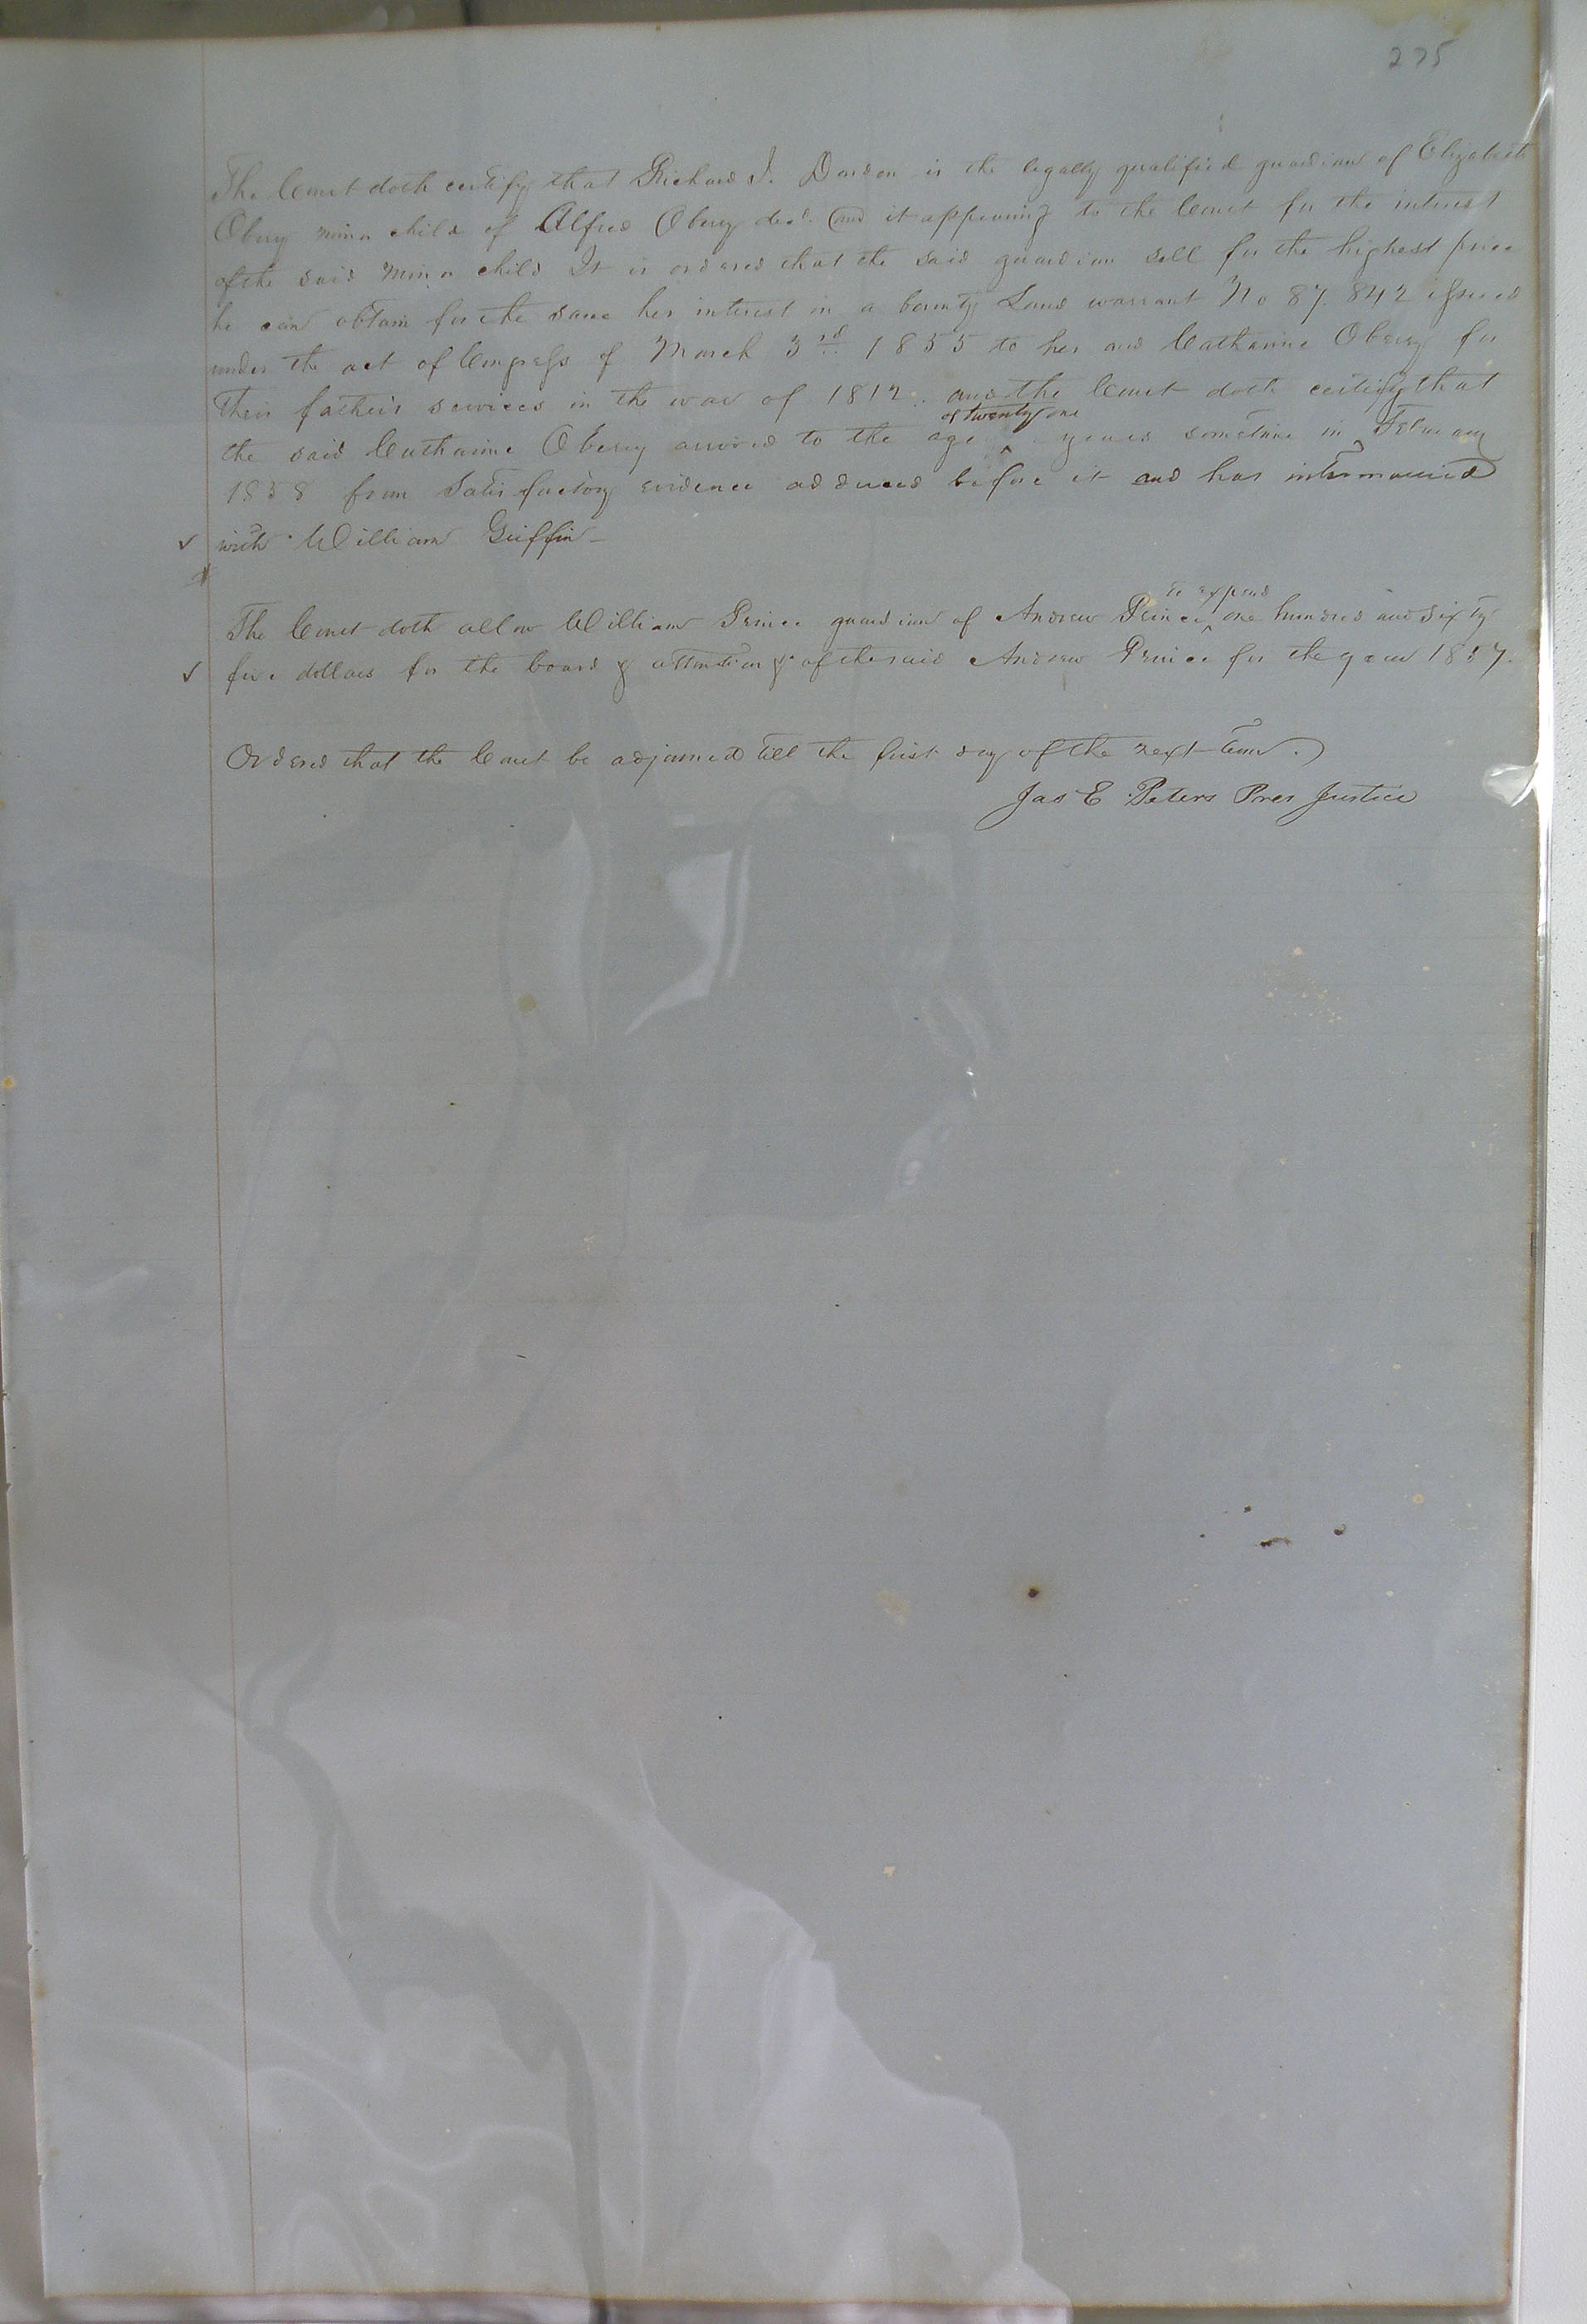 275
The Court doth certify that Richard J. Darden is the legally qualified guardian of Elizabeth
Obery minor child of Alfred Obery decd. and it appearing to the Court for the interest
of the said minor child It is ordered that the said guardian sell for the highest price
he can obtain for the same her interest in a bounty Land warrant No 87.842 issued
under the act of Congress of March 3rd 1855 to her and Catharine Obery for
their father's services in the war of 1812. and the Court doth certify that
the said Catharine Obery arrived to the age ^ of twenty one years sometime in February
1858 from Satisfactory evidence adduced before it and has intermarried
with William Griffin
The Court doth allow William Prince guardian of Andrew Prince ^ to expend one hundred and sixty
five dollars for the board & attention &c of the said Andrew Prince for the year 1857.
Ordered that the Court be adjourned till the first day of the next term.
Jas E Peters Pres Justice